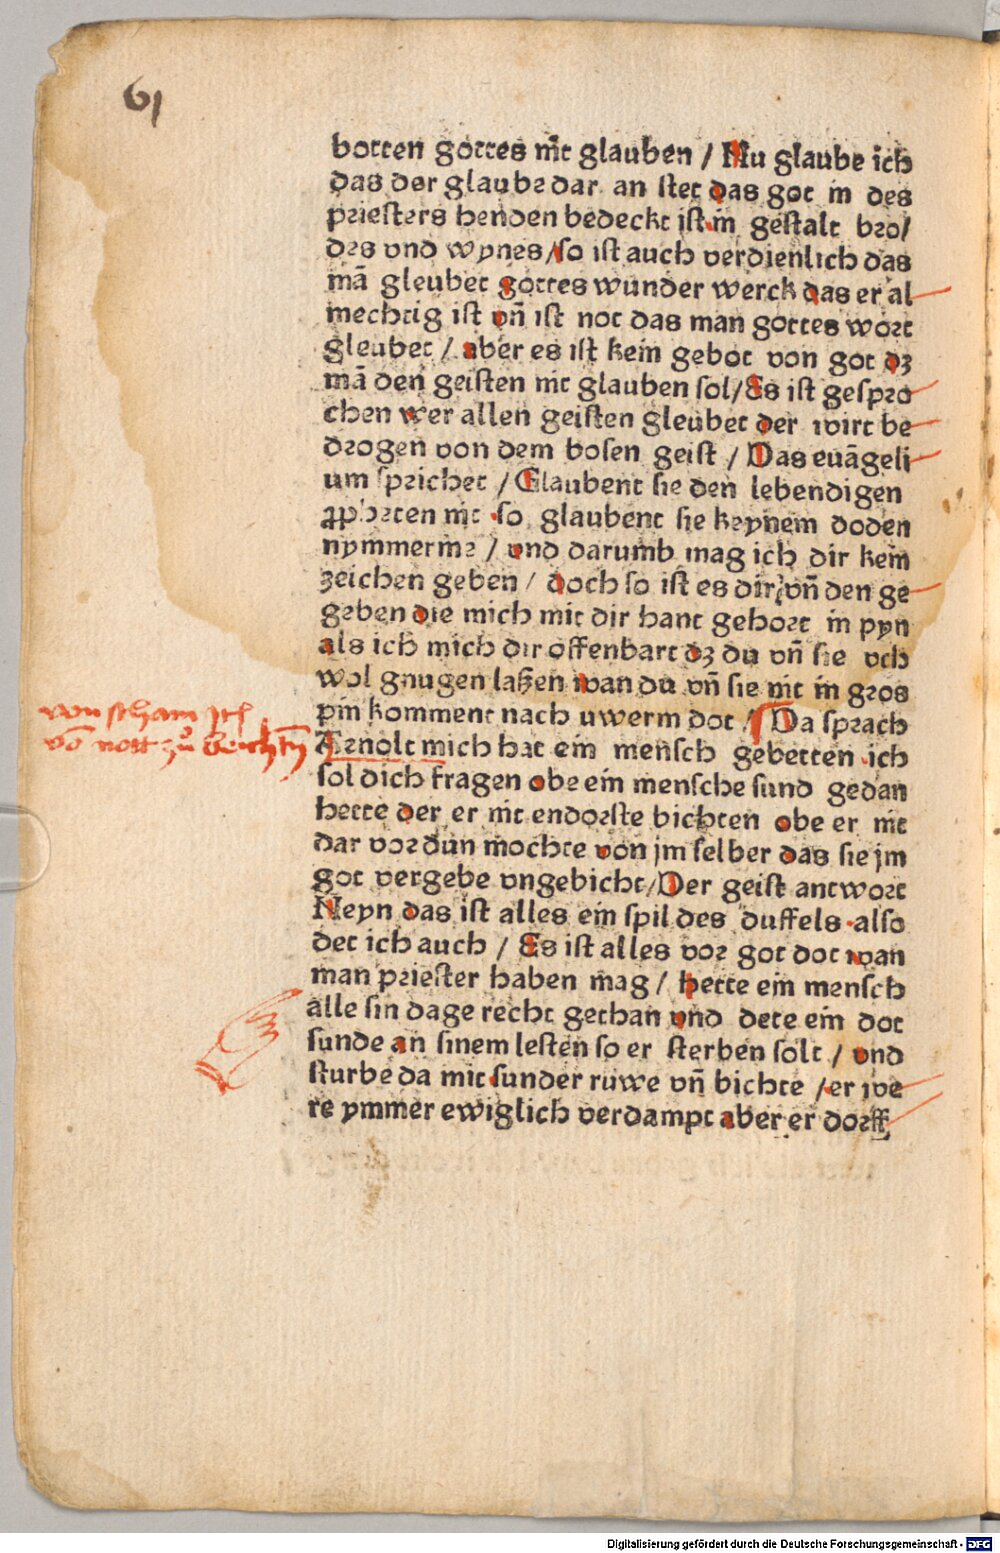 61
botten gottes nit glauben / Nu glaube ich
das der glaube dar an stet das got in des
priesters henden bedeckt ist in gestalt bro/
des vnd wynes / so ist auch verdienlich das
mā gleubet gottes wunder werck das er al
mechtig ist vn̄ ist not das man gottes wort
gleubet / aber es ist kein gebot von got dz
mā den geisten nit glauben sol / Es ist gespro
chen wer allen geisten gleubet der wirt be
drogen von dem bosen geist / Das euāgeli
um sprichet / Glaubent sie den lebendigen
ꝓpheten nit so glaubent sie keynem doden
nymmerme / vnd darumb mag ich dir kein
zeichen geben / doch so ist es dir vn̄ den ge
geben die mich mit dir hant gehort in pyn
als ich mich dir offenbart dz du vn̄ sie vch
wol gnugen laßen wan du vn̄ sie nit in gros
pin komment nach uwerm dot / Da sprach
Arnolt mich hat ein mensch gebetten ich
sol dich fragen obe ein mensche sund gedan
hette der er nit endorste bichten obe er nit
dar vor dun mochte von jm selber das sie jm
got vergebe vngebicht / Der geist antwort
Neyn das ist alles ein spil des duffels also
det ich auch / Es ist alles vor got dot wan
man priester haben mag / hette ein mensch
alle sin dage recht gethan vnd dete ein dot
sunde an sinem lesten so er sterben solt / vnd
sturbe da mit sunder ruwe vn̄ bichte / er we
re ymmer ewiglich verdampt aber er dorff
von scham
vō nott zů beichtn̄
Digitalisierung gefördert durch die Deutsche Forschungsgemeinschaft - DFG